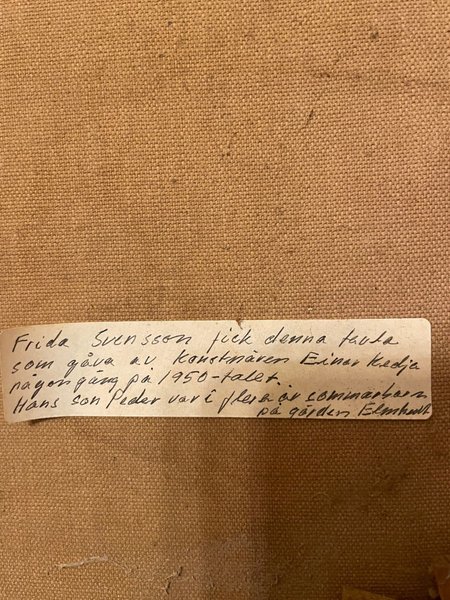 Frida Svensson fick denna tavla
som gåva av konstnären Einar Kedja
någon gång på 1950-talet.
Hans son Peder var i flera år sommarbarn
på gården